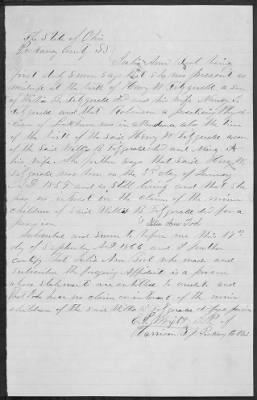 The State of Ohio
County SS.
Julia Ann being
first duly sworn says that she was present as
midwife at the birth of Henry W. Fitzgerald a son
of Willis B. Fitzgerald and his wife Nancy A.
Fitzgerald and that Robinson a practicing Physi
cian was in attendance at the time
of the birth of the said Henry W. Fitzgerald son
of the said Willis B. Fitzgerald and Nancy A.
his wife. She further says that said Henry W.
Fitzgerald was born on the 5th day of January
A.D. 1859 and is still living and that she
has no interest in the claim of the minor
children of said Willis B. Fitzgerald decd for a
pension
Julia Ann
Subscribed and sworn to before me this 18th
day of September A.D. 1866 and I further
certify that Julia Ann who made and
subscribed the foregoing affidavit is a person
whose statements are entitled to credit and
that she has no claim or interest of the minor
children of the said Willis B. Fitzgerald for pension
Wright J.P.
Harrison Tp